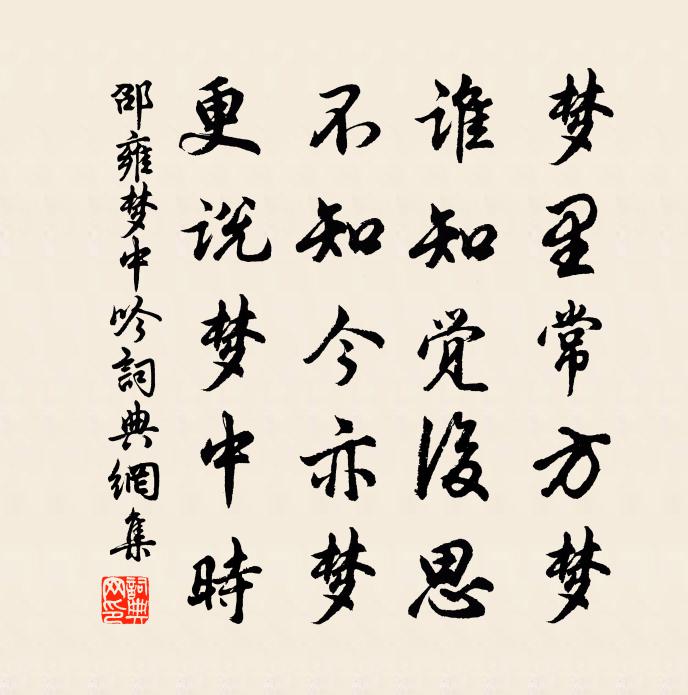 梦里常方梦
谁知觉後思
不知今亦梦
更说梦中時
邵雍梦中吟詞典網集
詞典網印